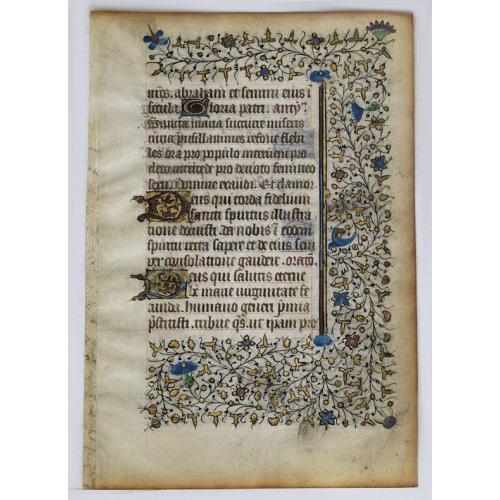 nr̄os. abraham et semini eius ī
secula. Gloria patri. antȳ.
Sancta maria succurre miseris
iuva pusillanimes refove flebi
les ora pro populo interveni pro
clero intercede pro devoto femineo
sexu. Domine exaudi. Et clamor
Deus qui corda fidelium
sancti spiritus illustra
tione docuisti. da nobis ī eodem
spiritu recta sapere et de eius sem
per consolatione gaudere. .oratō.
Deus qui salutis eterne
marie virginitate fe
cunda. humano generi p̄mia
p̄stitisti. tribue qs̄. ut ipam pro